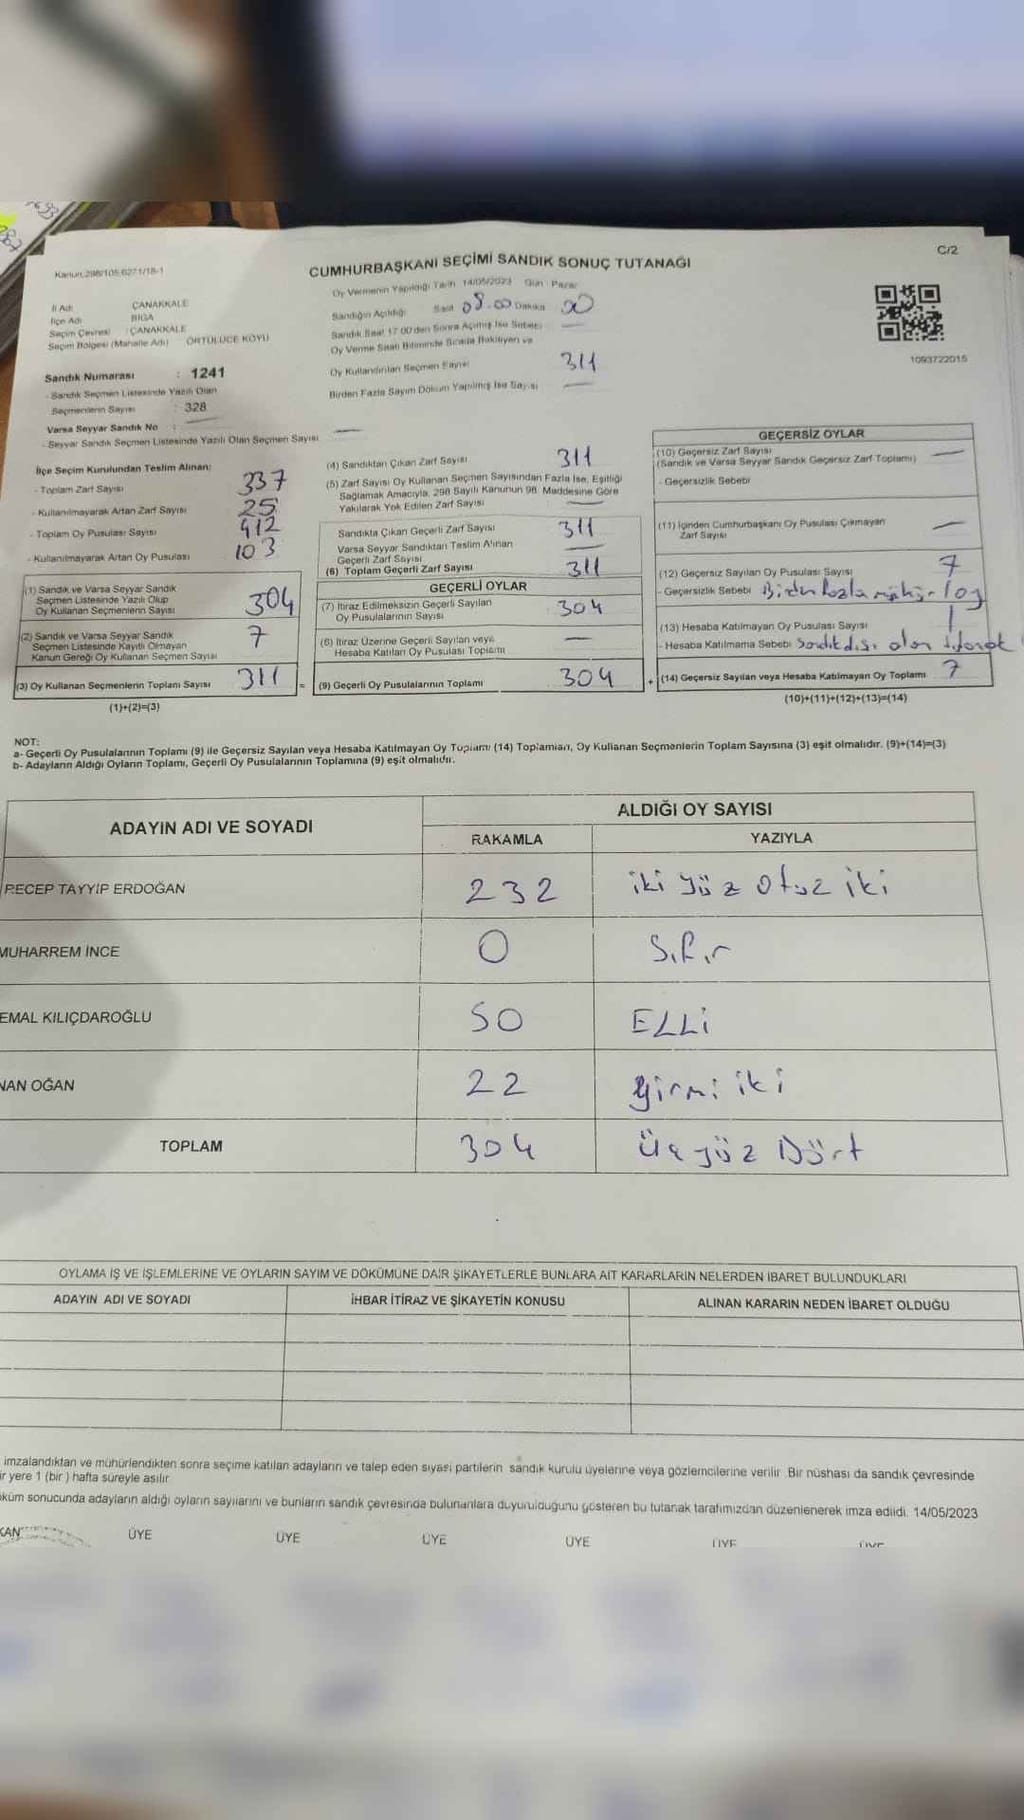 C/2
Kanun:298/105-6271/18-1
CUMHURBAŞKANI SEÇİMİ SANDIK SONUÇ TUTANAĞI
Oy Vermenin Yapıldığı Tarih 14/05/2023 Gün Pazar
İl Adı ÇANAKKALE
İlçe Adı BİGA
Seçim Çevresi : ÇANAKKALE
Seçim Bölgesi (Mahalle Adı) ÖRTÜLÜCE KÖYÜ
Sandığın Açıldığı Saat 08.00 Dakika 00
Sandık Saat 17 00'den Sonra Açılmış İse Sebebi
Oy Verme Saati Bitiminde Sırada Bekleyen ve
Oy Kullandırılan Seçmen Sayısı 311
Birden Fazla Sayım Döküm Yapılmış İse Sayısı
1093722015
Sandık Numarası : 1241
- Sandık Seçmen Listesinde Yazılı Olan
Seçmenlerin Sayısı : 328
Varsa Seyyar Sandık No :
- Seyyar Sandık Seçmen Listesinde Yazılı Olan Seçmen Sayısı
İlçe Seçim Kurulundan Teslim Alınan:
- Toplam Zarf Sayısı 337
- Kullanılmayarak Artan Zarf Sayısı 25
- Toplam Oy Pusulası Sayısı 412
- Kullanılmayarak Artan Oy Pusulası 103
(1) Sandık ve Varsa Seyyar Sandık
Seçmen Listesinde Yazılı Olup
Oy Kullanan Seçmenlerin Sayısı 304
(2) Sandık ve Varsa Seyyar Sandık
Seçmen Listesinde Kayıtlı Olmayan
Kanun Gereği Oy Kullanan Seçmen Sayısı 7
(3) Oy Kullanan Seçmenlerin Toplam Sayısı 311 =
(1)+(2)=(3)
(4) Sandıktan Çıkan Zarf Sayısı 311
(5) Zarf Sayısı Oy Kullanan Seçmen Sayısından Fazla İse, Eşitliği
Sağlamak Amacıyla, 298 Sayılı Kanunun 98. Maddesine Göre
Yakılarak Yok Edilen Zarf Sayısı
Sandıkta Çıkan Geçerli Zarf Sayısı 311
Varsa Seyyar Sandıktan Teslim Alınan
Geçerli Zarf Sayısı
(6) Toplam Geçerli Zarf Sayısı 311
GEÇERLİ OYLAR
(7) İtiraz Edilmeksizin Geçerli Sayılan
Oy Pusulalarının Sayısı 304
(8) İtiraz Üzerine Geçerli Sayılan veya
Hesaba Katılan Oy Pusulası Toplamı
(9) Geçerli Oy Pusulalarının Toplamı 304 +
GEÇERSİZ OYLAR
(10) Geçersiz Zarf Sayısı
(Sandık ve Varsa Seyyar Sandık Geçersiz Zarf Toplamı)
- Geçersizlik Sebebi
(11) İçinden Cumhurbaşkanı Oy Pusulası Çıkmayan
Zarf Sayısı
(12) Geçersiz Sayılan Oy Pusulası Sayısı 7
- Geçersizlik Sebebi Birden fazla mühür
(13) Hesaba Katılmayan Oy Pusulası Sayısı
- Hesaba Katılmama Sebebi Sandık dışı olan
(14) Geçersiz Sayılan veya Hesaba Katılmayan Oy Toplamı 7
(10)+(11)+(12)+(13)=(14)
NOT:
a- Geçerli Oy Pusulalarının Toplamı (9) ile Geçersiz Sayılan veya Hesaba Katılmayan Oy Toplamı (14) Toplamları, Oy Kullanan Seçmenlerin Toplam Sayısına (3) eşit olmalıdır. (9)+(14)=(3)
b- Adayların Aldığı Oyların Toplamı, Geçerli Oy Pusulalarının Toplamına (9) eşit olmalıdır.
ADAYIN ADI VE SOYADI
ALDIĞI OY SAYISI
RAKAMLA YAZIYLA
RECEP TAYYİP ERDOĞAN 232 iki yüz otuz iki
MUHARREM İNCE 0 Sıfır
EMAL KILIÇDAROĞLU 50 ELLİ
NAN OĞAN 22 Yirmi iki
TOPLAM 304 Üçyüz Dört
OYLAMA İŞ VE İŞLEMLERİNE VE OYLARIN SAYIM VE DÖKÜMÜNE DAİR ŞİKAYETLERLE BUNLARA AİT KARARLARIN NELERDEN İBARET BULUNDUKLARI
ADAYIN ADI VE SOYADI İHBAR İTİRAZ VE ŞİKAYETİN KONUSU ALINAN KARARIN NEDEN İBARET OLDUĞU
imzalandıktan ve mühürlendikten sonra seçime katılan adayların ve talep eden siyasi partilerin sandık kurulu üyelerine veya gözlemcilerine verilir. Bir nüshası da sandık çevresinde
ir yere 1 (bir ) hafta süreyle asılır.
küm sonucunda adayların aldığı oyların sayılarını ve bunların sandık çevresinde bulunanlara duyurulduğunu gösteren bu tutanak tarafımızdan düzenlenerek imza edildi. 14/05/2023
KAN ÜYE ÜYE ÜYE ÜYE ÜYE ÜYE